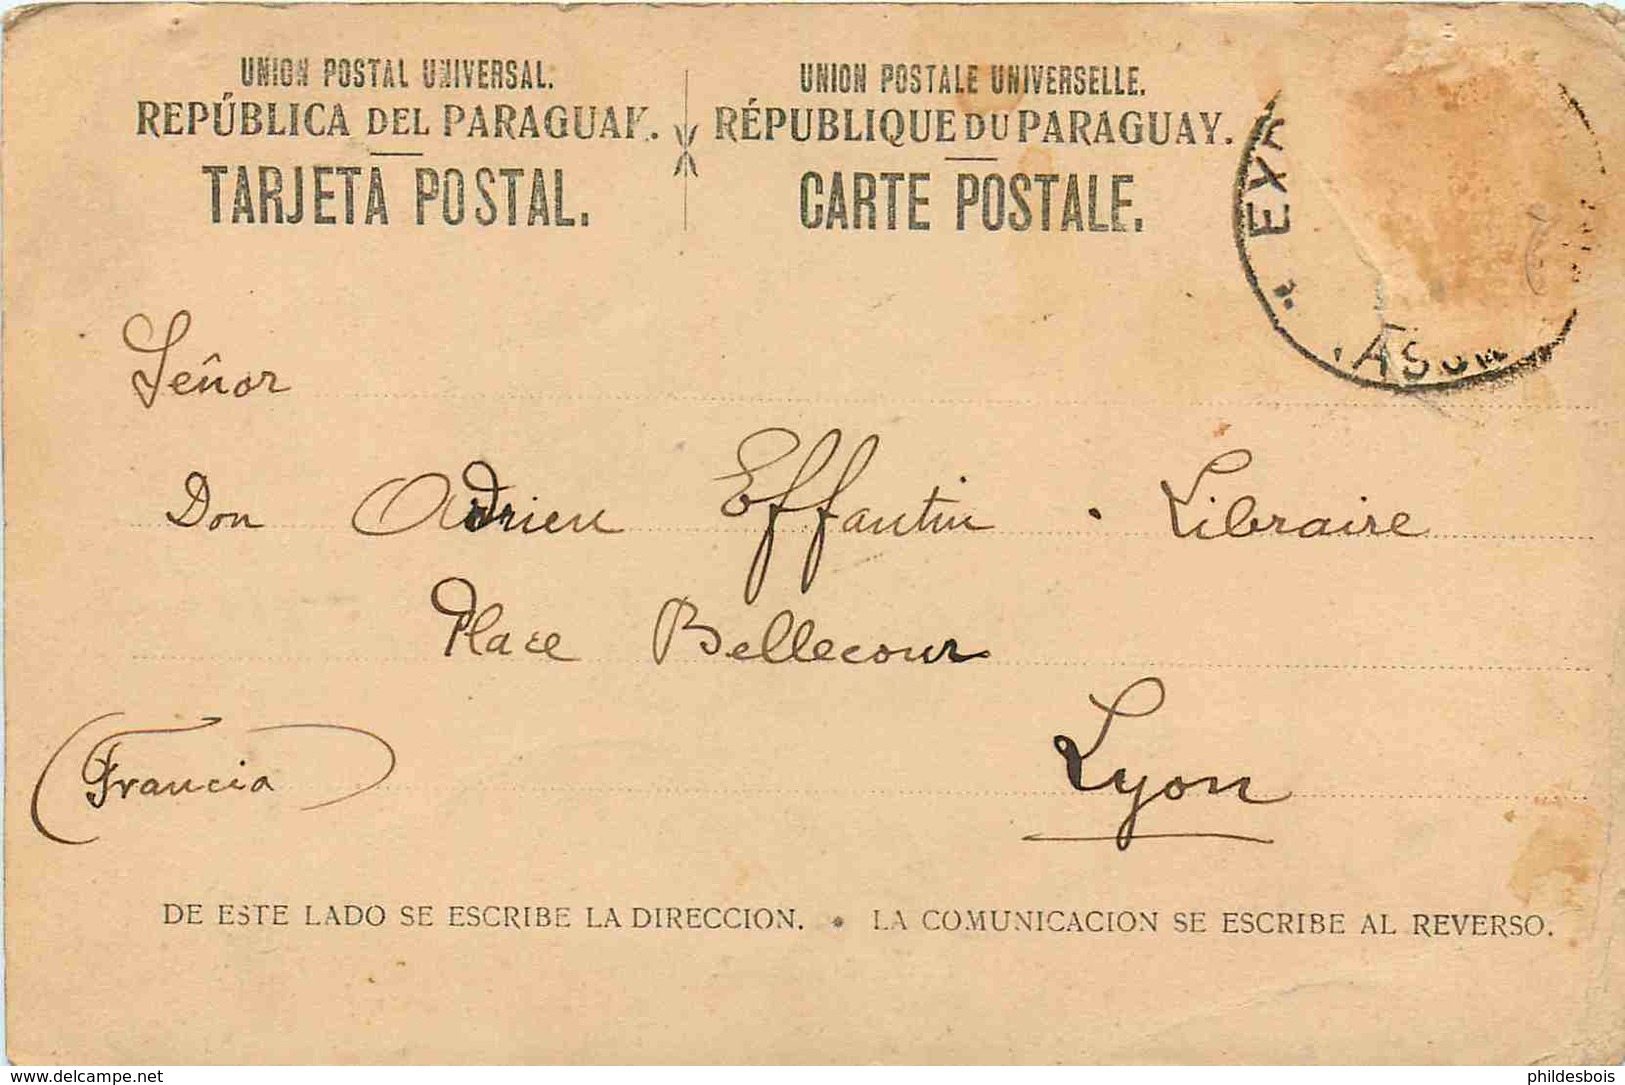 UNION POSTAL UNIVERSAL.
REPÚBLICA DEL PARAGUAY.
TARJETA POSTAL.
UNION POSTALE UNIVERSELLE.
RÉPUBLIQUE DU PARAGUAY.
CARTE POSTALE.
Señor
Don Adrien Effantin . Libraire
Place Bellecour
Lyon
(Francia)
DE ESTE LADO SE ESCRIBE LA DIRECCION. • LA COMUNICACION SE ESCRIBE AL REVERSO.
http://www.delcampe.net
phildesbois